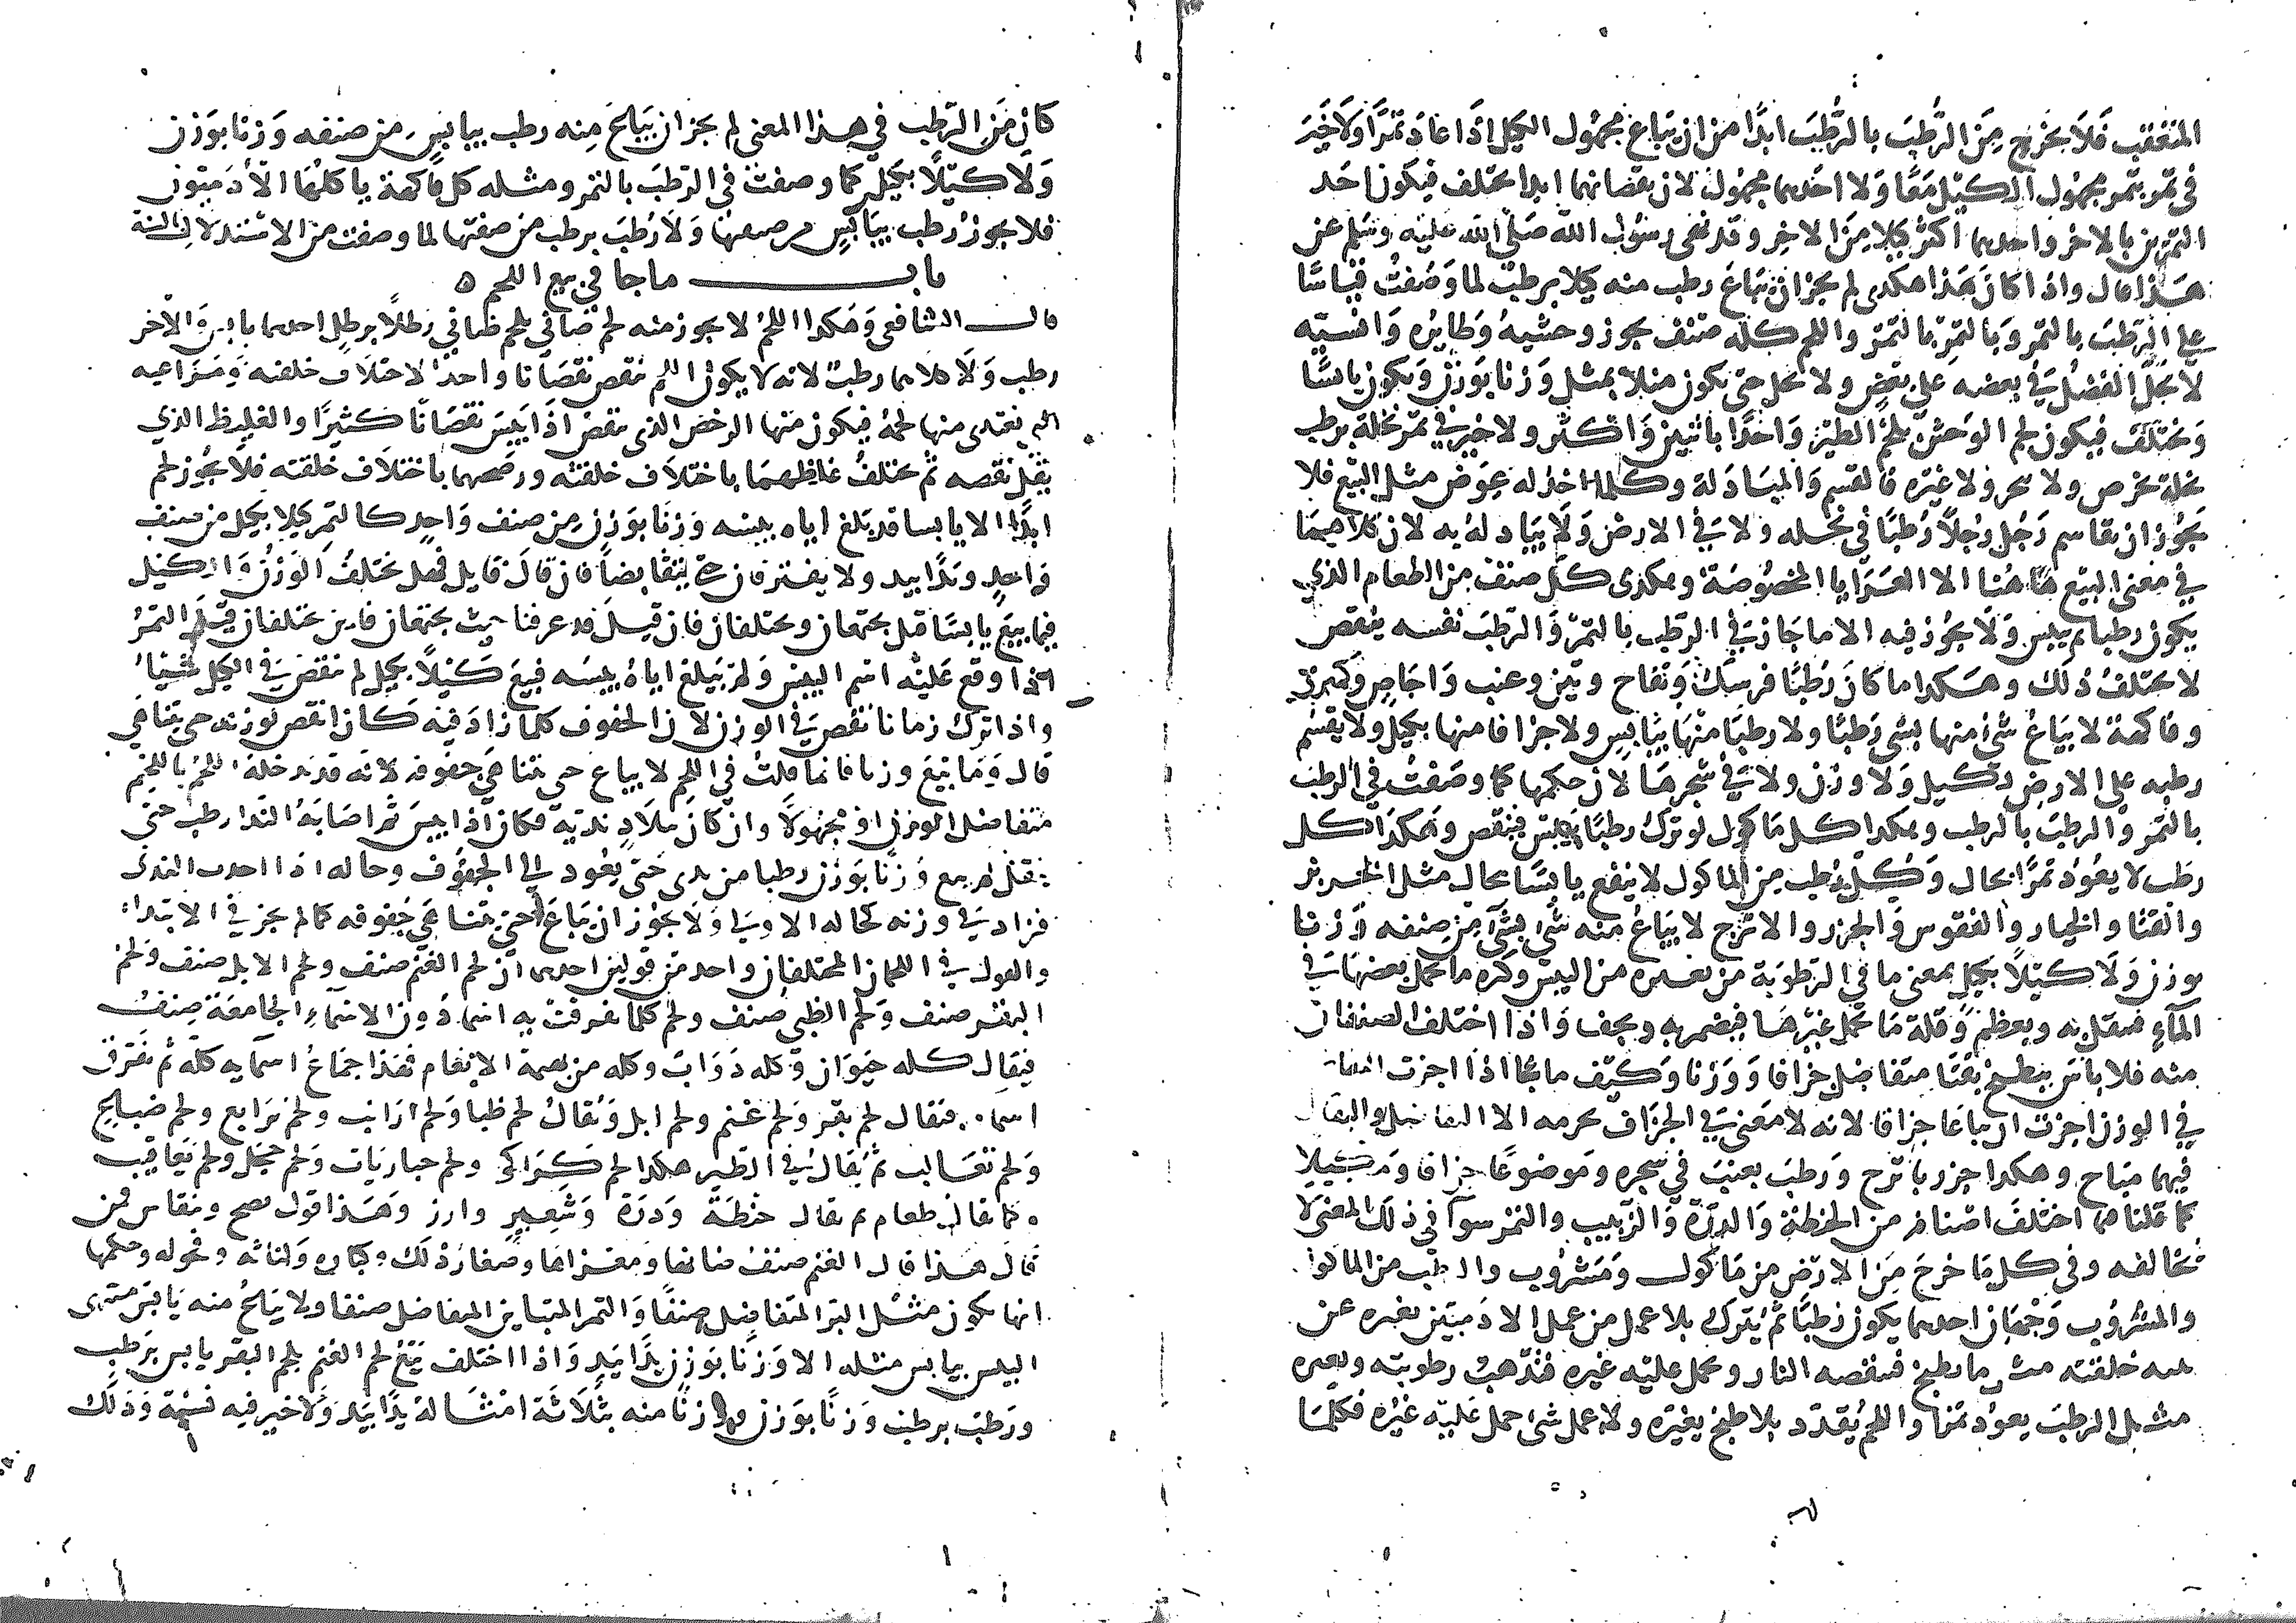 المتعقب فلا يخرج من الرطب بالرطب ابدا من ان يباع مجهول الكيل اذا عاد تمرا ولا خير
في تمر بتمر مجهول الكيل معا ولا احدهما مجهول لان نقصانهما ابدا يختلف فيكون احد
التمرين بالاخر واحدهما اكثر كيلا من الاخر وقد نهى رسول الله صلى الله عليه وسلم عن
هذا قال واذا كان هذا هكدى لم يجز ان يباع رطب منه كيلا برطب لما وصفت قياسا
على الرطب بالتمر وبالتمر بالتمر واللحم كله صنف يجوز وحشيه وطايره وانسيه
لا يحل الفضل في بعضه على بعض ولا يحل حتى يكون مثلا بمثل وزنا بوزن ويكون يابسا
ويختلف فيكون لحم الوحش بلحم الطير واحدا باثنين واكثر ولا خير في تمر نخلة برطب
نخلة بخرص ولا بتحر ولا غيره فالقسم والمبادلة وكلما اخذ له عوض مثل البيع فلا
يجوز ان يقاسم رجل رجلا رطبا في نخله ولا في الارض ولا يبادله به لان كلاهما
في معنى البيع هاهنا الا العرايا المخصوصة وهكدى كل صنف من الطعام الذي
يكون رطبا ثم ييبس ولا يجوز فيه الا ما جاز في الرطب بالتمر والرطب نفسه ينقص
لا يختلف ذلك وهكدا ما كان رطبا فرسك وتفاح وتين وعنب واجاص وكمثرى
وفاكهة لا يباع شي منها بشي رطبا ولا رطبا منها بيابس ولا جزافا منها بكيل ولا يقسم
رطبه على الارض بكيل ولا وزن ولا في شجرها لان حكمها كما وصفت في الرطب
بالتمر والرطب بالرطب وهكدا كل ماكول لو ترك رطبا ييبس فينقص وهكدا كل
رطب لا يعود تمرا بحال وكل رطب من الماكول لا ينفع يابسا بحال مثل الخربز
والقثا والخيار والفقوس والجزر والاترج لا يباع منه شي بشي من صنفه وزنا
بوزن ولا كيلا بكيل بمعنى ما في الرطوبة من تغيره من اليبس وكره ما يحمل بعضها في
الماء فيثقل به ويعظم وقلة ما يحمل غيرها فيضمر به ويجف واذا اختلف الصنفان
منه فلا باس ببطيخ بقثا متفاضل جزافا ووزنا وكيف ما شا اذا اجزت التفاضل
في الوزن اجزت ان يباعا جزافا لانه لا معنى في الجزاف يحرمه الا التفاضل والتفاضل
فيهما مباح وهكدا جزر باترج ورطب بعنب في شجره وموضوعا جزافا ومكيلا
كما قلنا فيما اختلف اصنافه من الحنطة والذرة والزبيب والتمر سوا في ذلك المعنى لا
تخالفه وفي كل ما خرج من الارض من ماكول ومشروب والرطب من الماكول
والمشروب وجهان احدهما يكون رطبا ثم يترك بلا عمل من عمل الادميين يغيره عن
خلقته مثل ما يطبخ فتنقصه النار ويحمل عليه غيره فتذهب رطوبته ويغيره
مثل الرطب يعود تمرا واللحم يقدد بلا طبخ يغيره ولا عمل شي حمل عليه غيره فكلما
كان من الرطب في هذا المعنى لم يجز ان يبايع منه رطب بيابس من صنفه وزنا بوزن
ولا كيلا بكيل كما وصفت في الرطب بالتمر ومثله كل فاكهة ياكلها الادميون
فلا يجوز رطب بيابس من صنفها ولا رطب برطب من صنفها لما وصفت من الاستدلال بالسنة
باب ماجا في بيع اللحم ه
قال الشافعي وهكدا اللحم لا يجوز منه لحم ضاني بلحم ضاني رطلا برطل احدهما يابس والاخر
رطب ولا كلاهما رطب لانه لا يكون اللحم ينقص نقصانا واحدا لاختلاف خلقته ومراعيه
التي يغتدى منها لحمه فيكون منها الرخص الذي ينقص اذا يبس نقصانا كثيرا والغليظ الذي
يقل نقصه ثم يختلف غلظهما باختلاف خلقته ورخصهما باختلاف خلقته فلا يجوز لحم
ابدا الا يابسا قد بلغ اياه بيبسه وزنا بوزن من صنف واحد كالتمر كيلا بكيل من صنف
واحد ويدا بيد ولا يفترقان حتى يتقابضا فان قال قايل فهل يختلف الوزن والكيل
فيما بيع يابسا قيل يجتمعان ويختلفان فان قيل قد عرفنا حيث يجتمعان فاين يختلفان قيل التمر
اذا وقع عليه اسم اليبس ولم يبلغ اياه يبسه فبيع كيلا بكيل لم ينقص في الكيل شيئا
واذا ترك زمانا نقص في الوزن لان الجفوف كلما زاد فيه كان انقص لوزنه حتى يتناهى
قال وما بيع وزنا فانما قلت في اللحم لا يباع حتى يتناهى جفوفه لانه قد يدخله اللحم باللحم
متفاضل الوزن او مجهولا وان كان ببلاد ندية فكان اذا يبس ثم اصابه الندا رطب حتى
يثقل لم يبع وزنا بوزن رطبا من ندى حتى يعود الى الجفوف وحاله اذا احدث الندى
فزاد في وزنه كحاله الاولى ولا يجوز ان يباع حتى يتناهى جفوفه كما لم يجز في الابتداء
والقول في اللحمان المختلفان واحد من قولين احدهما ان لحم الغنم صنف ولحم الابل صنف ولحم
البقر صنف ولحم الظبي صنف ولحم كلما تفرقت به اسما دون الاسماء الجامعة صنف
فيقال كله حيوان وكله دواب وكله من بهيمة الانعام فهذا جماع اسمايه كله ثم تفرق
اسماه فيقال لحم بقر ولحم غنم ولحم ابل ويقال لحم ظبا ولحم ارانب ولحم يرابيع ولحم ضباع
ولحم ثعالب ثم يقال في الطير هكدا لحم كراكي ولحم حباريات ولحم حجل ولحم يعاقيب
كما يقال طعام ثم يقال حنطة وذرة وشعير وارز وهذا قول يصح وينقاس فمن
قال هذا قال الغنم صنف ضانها ومعزاها وصغار ذلك وكباره واناثه وفحوله وحكمها
انها تكون مثل البر المتفاضل صنفا والتمر المتباين المتفاضل صنفا ولا يبايع منه يابس منتهى
اليبس بيابس مثله الا وزنا بوزن يدا بيد واذا اختلف بيع لحم الغنم بلحم البقر يابس برطب
ورطب برطب وزنا بوزن ووزنا منه بثلاثة امثاله يدا بيد ولا خير فيه نسية وذلك